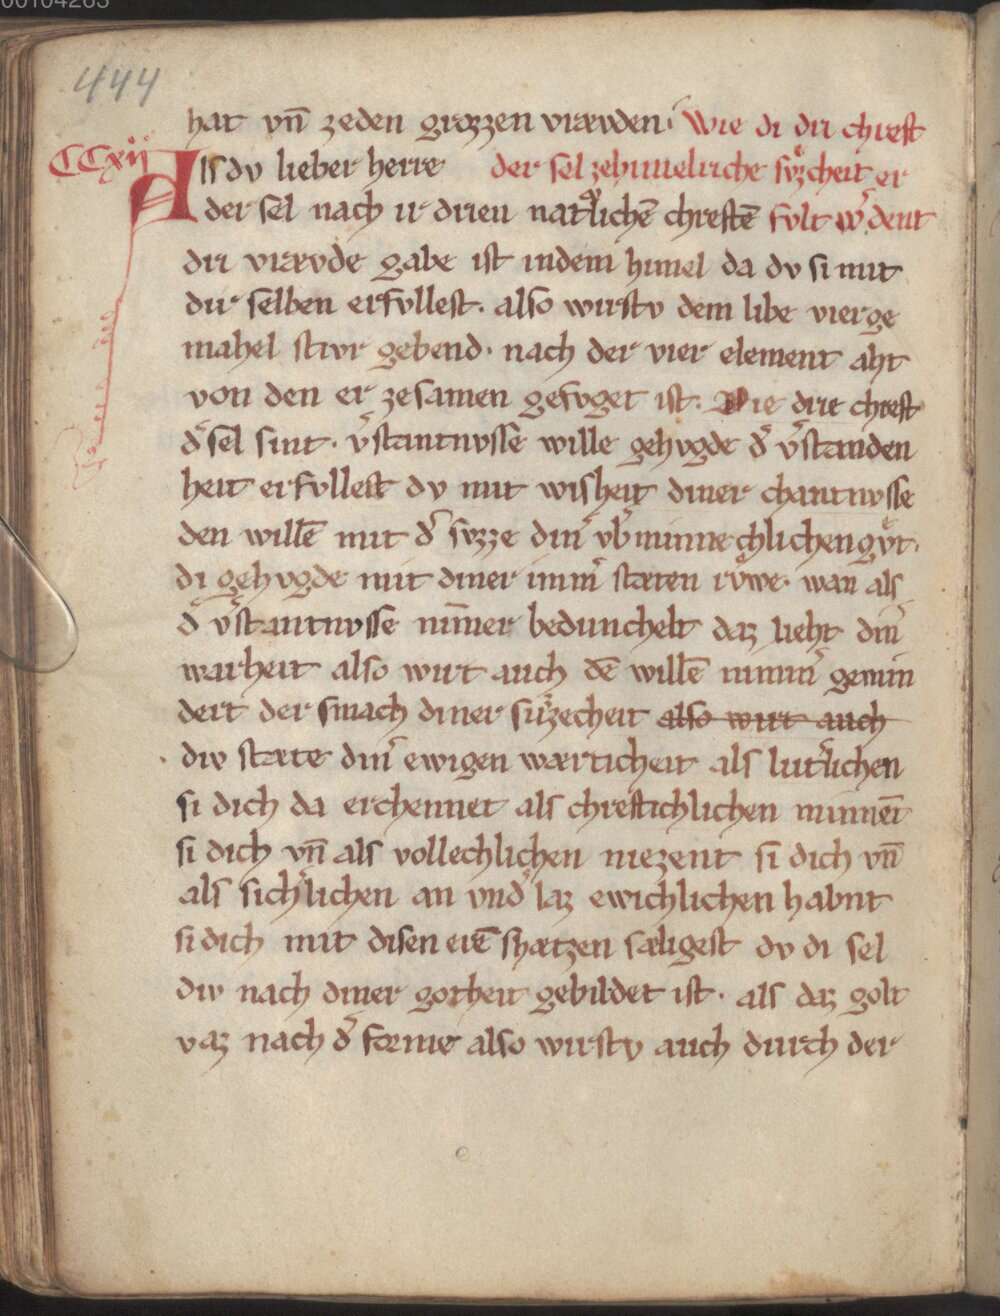 00104263
444
hat vn̄ zeden grozzen vrævden. Wie di dri chrest
CCxii
Als dv lieber herre der sel zehimelische sv̊zcheit er
der sel nach ir drien natv̊rlichē chrestē fvlt w̓dent
dri vrævde gabe ist indem himel da dv si mit
dir selben erfvllest. also wirstv dem libe vierge
mahel stivr gebend. nach der vier element aht
von den er zesamen gefvget ist. Die drie chrest
d̓ sel sint. v̓stantnvsse wille gehvgde d̓ v̓standen
heit erfvllest dv mit wisheit diner chantnvsse
den willē mit d̓ svzze din̓ vb̓minnechlichen gv̊t.
di gehvgde mit diner imm̓ stæten rvwe. wan als
d̓ v̓stantnvsse nim̄er bedunchelt daz lieht din̓
warheit also wirt auch dē willē nimm̓ gemin
dert der smach diner sv̊zecheit also wirt auch
div stæte din̓ ewigen wærticheit als lut̓lichen
si dich da erchennet als chrestichlichen minnēt
si dich vn̄ als vollechlichen niezent si dich vn̄
als sich̓lichen an vnd̓laz ewichlichen habnt
si dich mit disen eiē shætzen sæligest dv di sel
div nach diner gotheit gebildet ist. als daz golt
vaz nach d̓ forme also wirstv auch durch der